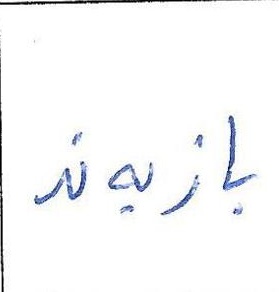 بازیەند